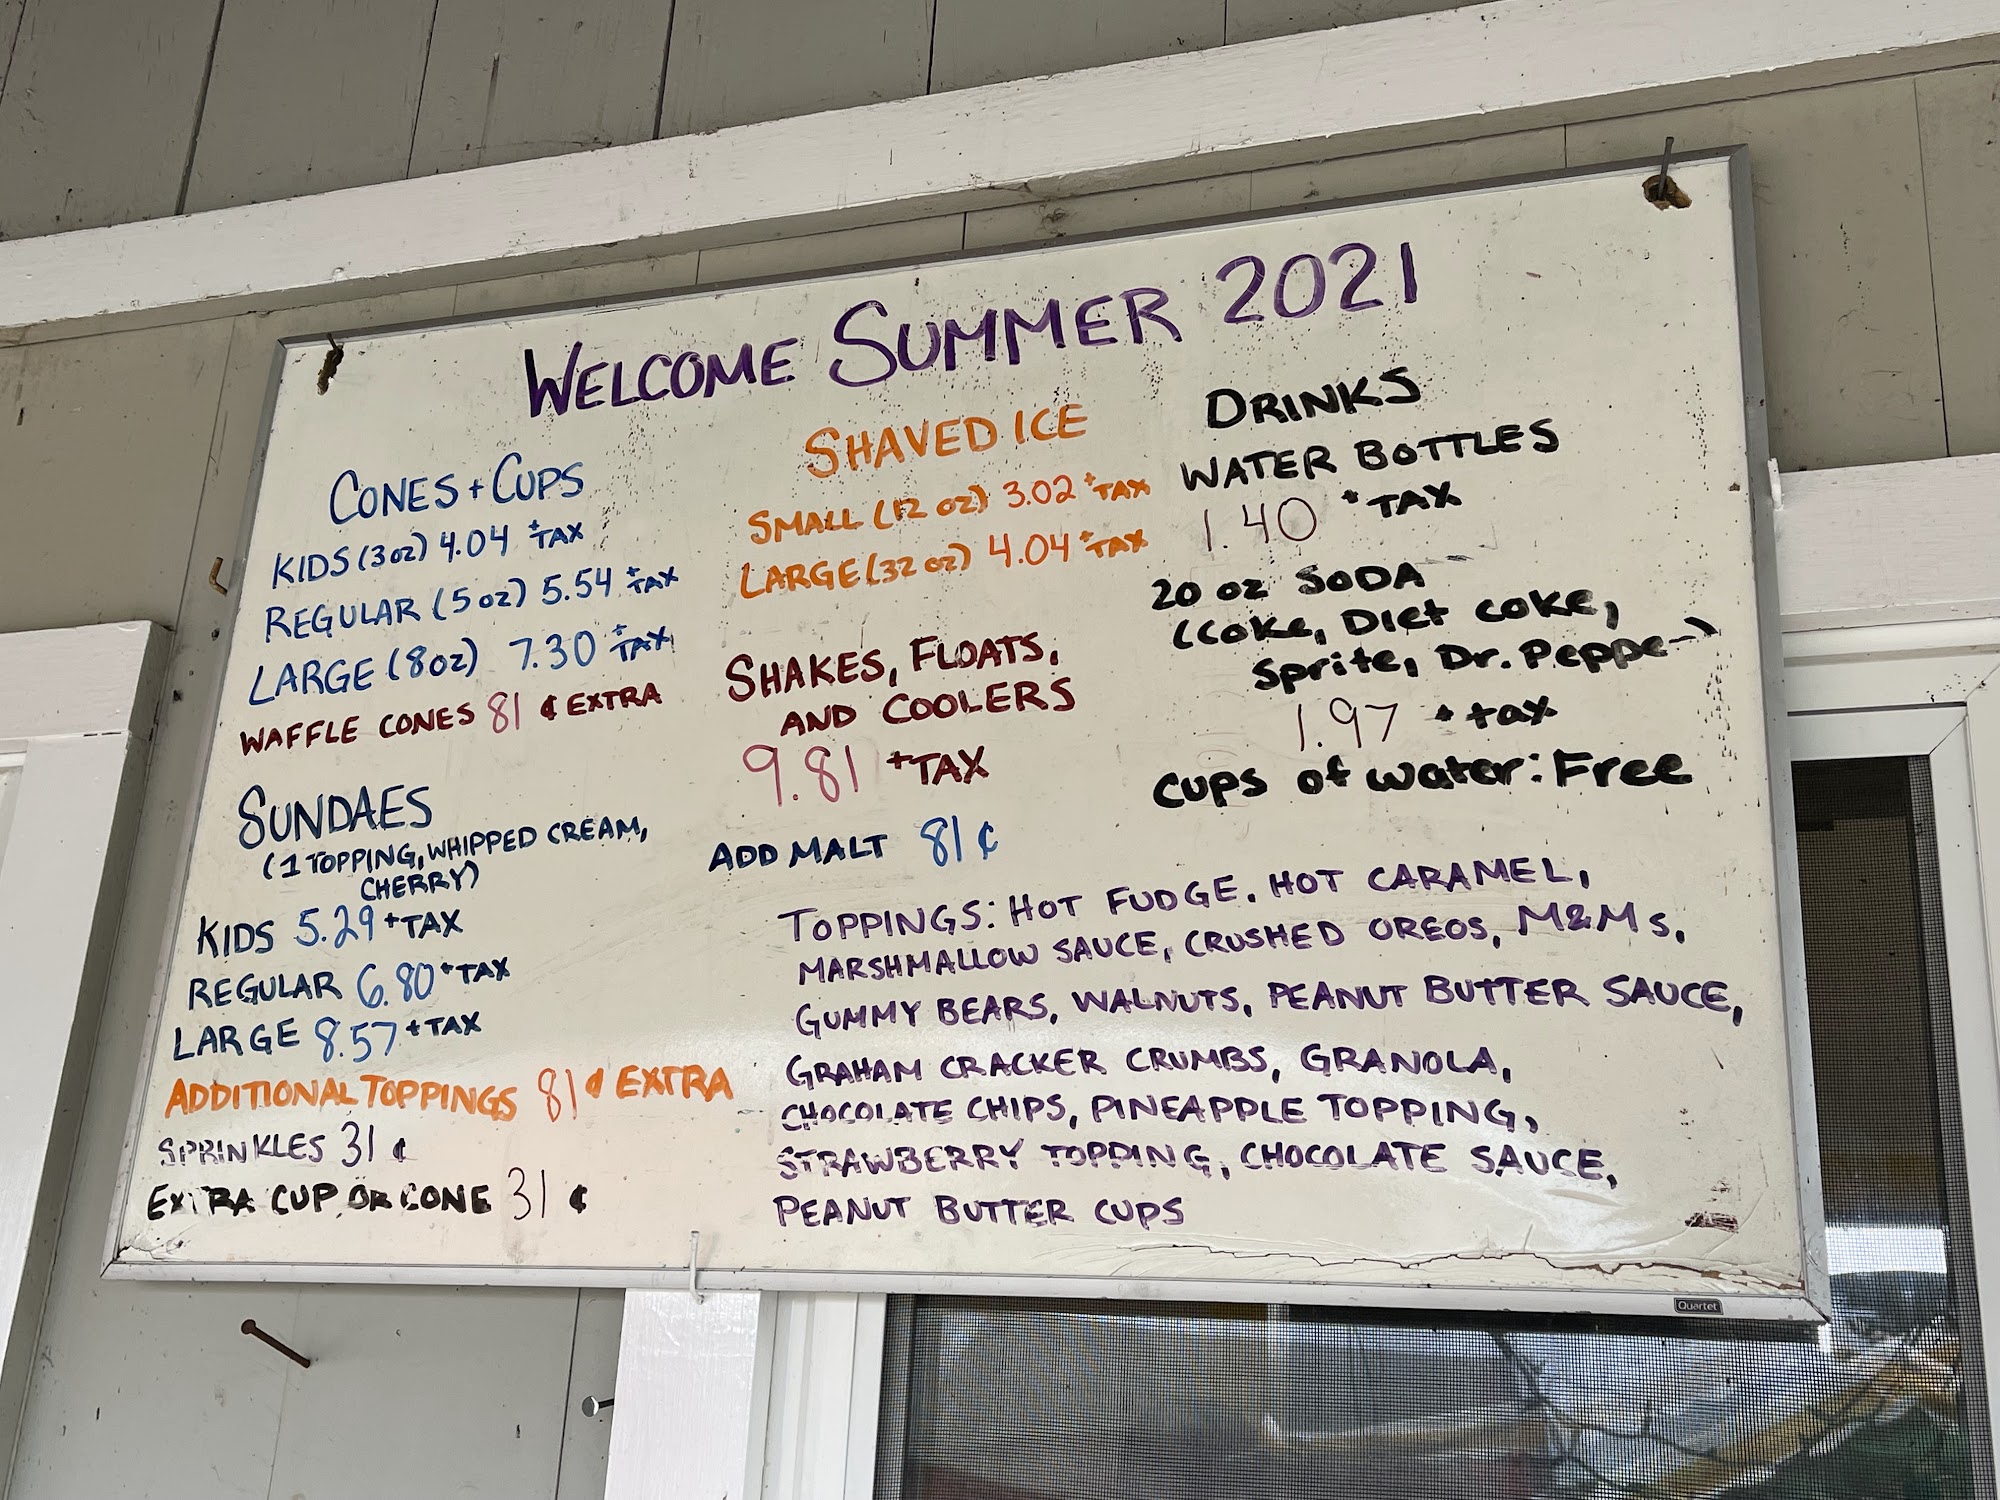 WELCOME SUMMER 2021
CONES + CUPS
KIDS (3oz) 4.04 + TAX
REGULAR (5 oz) 5.54 + TAX
LARGE (8oz) 7.30 + TAX
WAFFLE CONES 81 ¢ EXTRA
SUNDAES
(1 TOPPING, WHIPPED CREAM,
CHERRY)
KIDS 5.29 + TAX
REGULAR 6.80 + TAX
LARGE 8.57 + TAX
ADDITIONAL TOPPINGS 81 ¢ EXTRA
SPRINKLES 31 ¢
EXTRA CUP OR CONE 31 ¢
SHAVED ICE
SMALL (12 oz) 3.02 + TAX
LARGE (32 oz) 4.04 + TAX
SHAKES, FLOATS,
AND COOLERS
9.81 + TAX
ADD MALT 81 ¢
DRINKS
WATER BOTTLES
1.40 + TAX
20 oz SODA
(Coke, Diet coke,
Sprite, Dr. Pepper)
1.97 + tax
cups of water: Free
TOPPINGS: HOT FUDGE, HOT CARAMEL,
MARSHMALLOW SAUCE, CRUSHED OREOS, M&Ms,
GUMMY BEARS, WALNUTS, PEANUT BUTTER SAUCE,
GRAHAM CRACKER CRUMBS, GRANOLA,
CHOCOLATE CHIPS, PINEAPPLE TOPPING,
STRAWBERRY TOPPING, CHOCOLATE SAUCE,
PEANUT BUTTER CUPS
Quartet